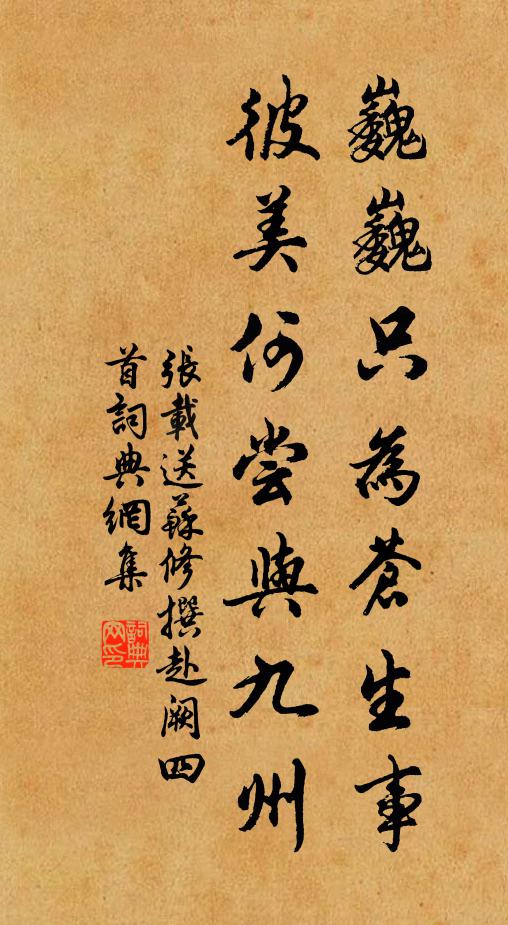 巍巍只為蒼生事
彼美何嘗與九州
張載送蘇修撰赴闕四
首詞典網集
詞典网印